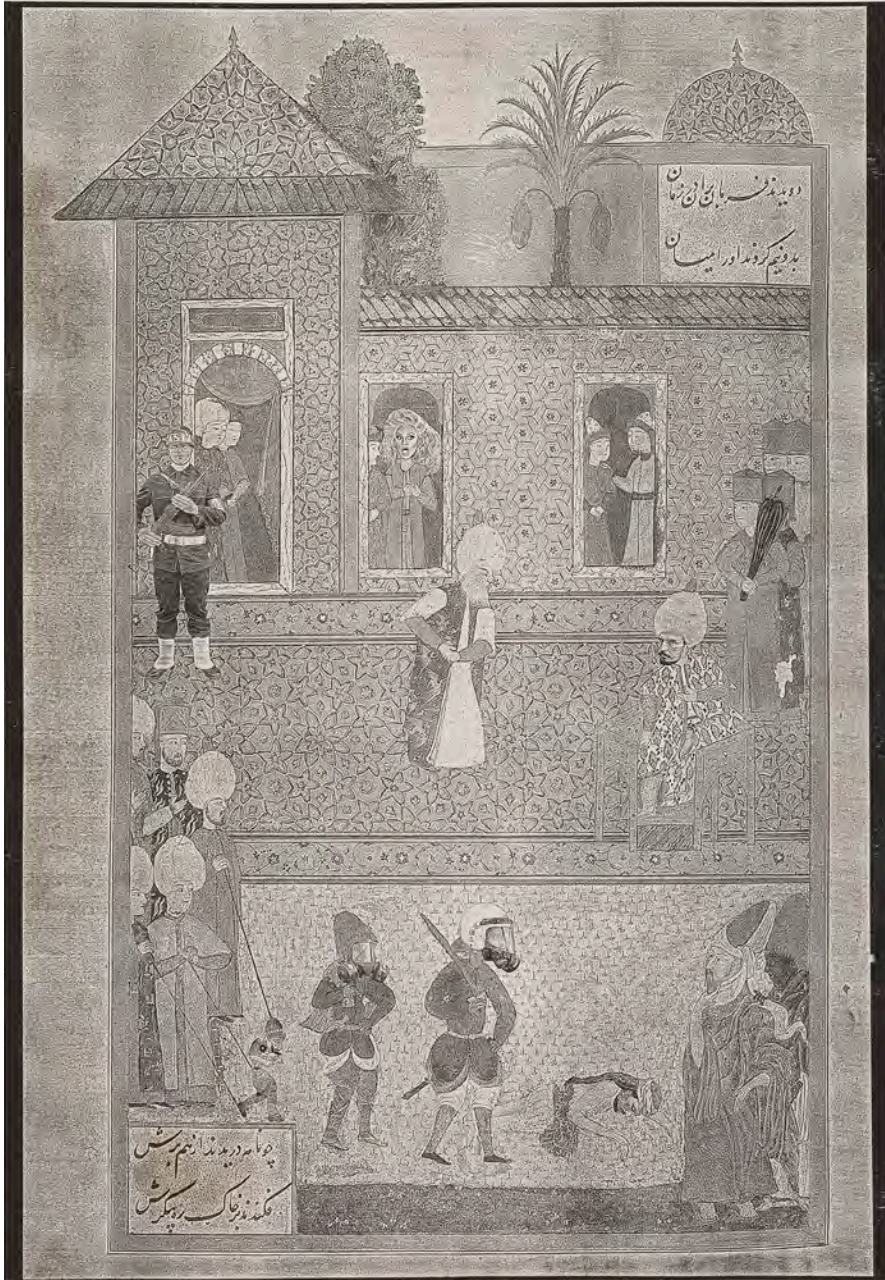 دویدند فرمان بران در زمان
بدونیم کردند اورا میان
چو نامه دریدند از نیم برش
فکندند بر خاک ره پیکرش